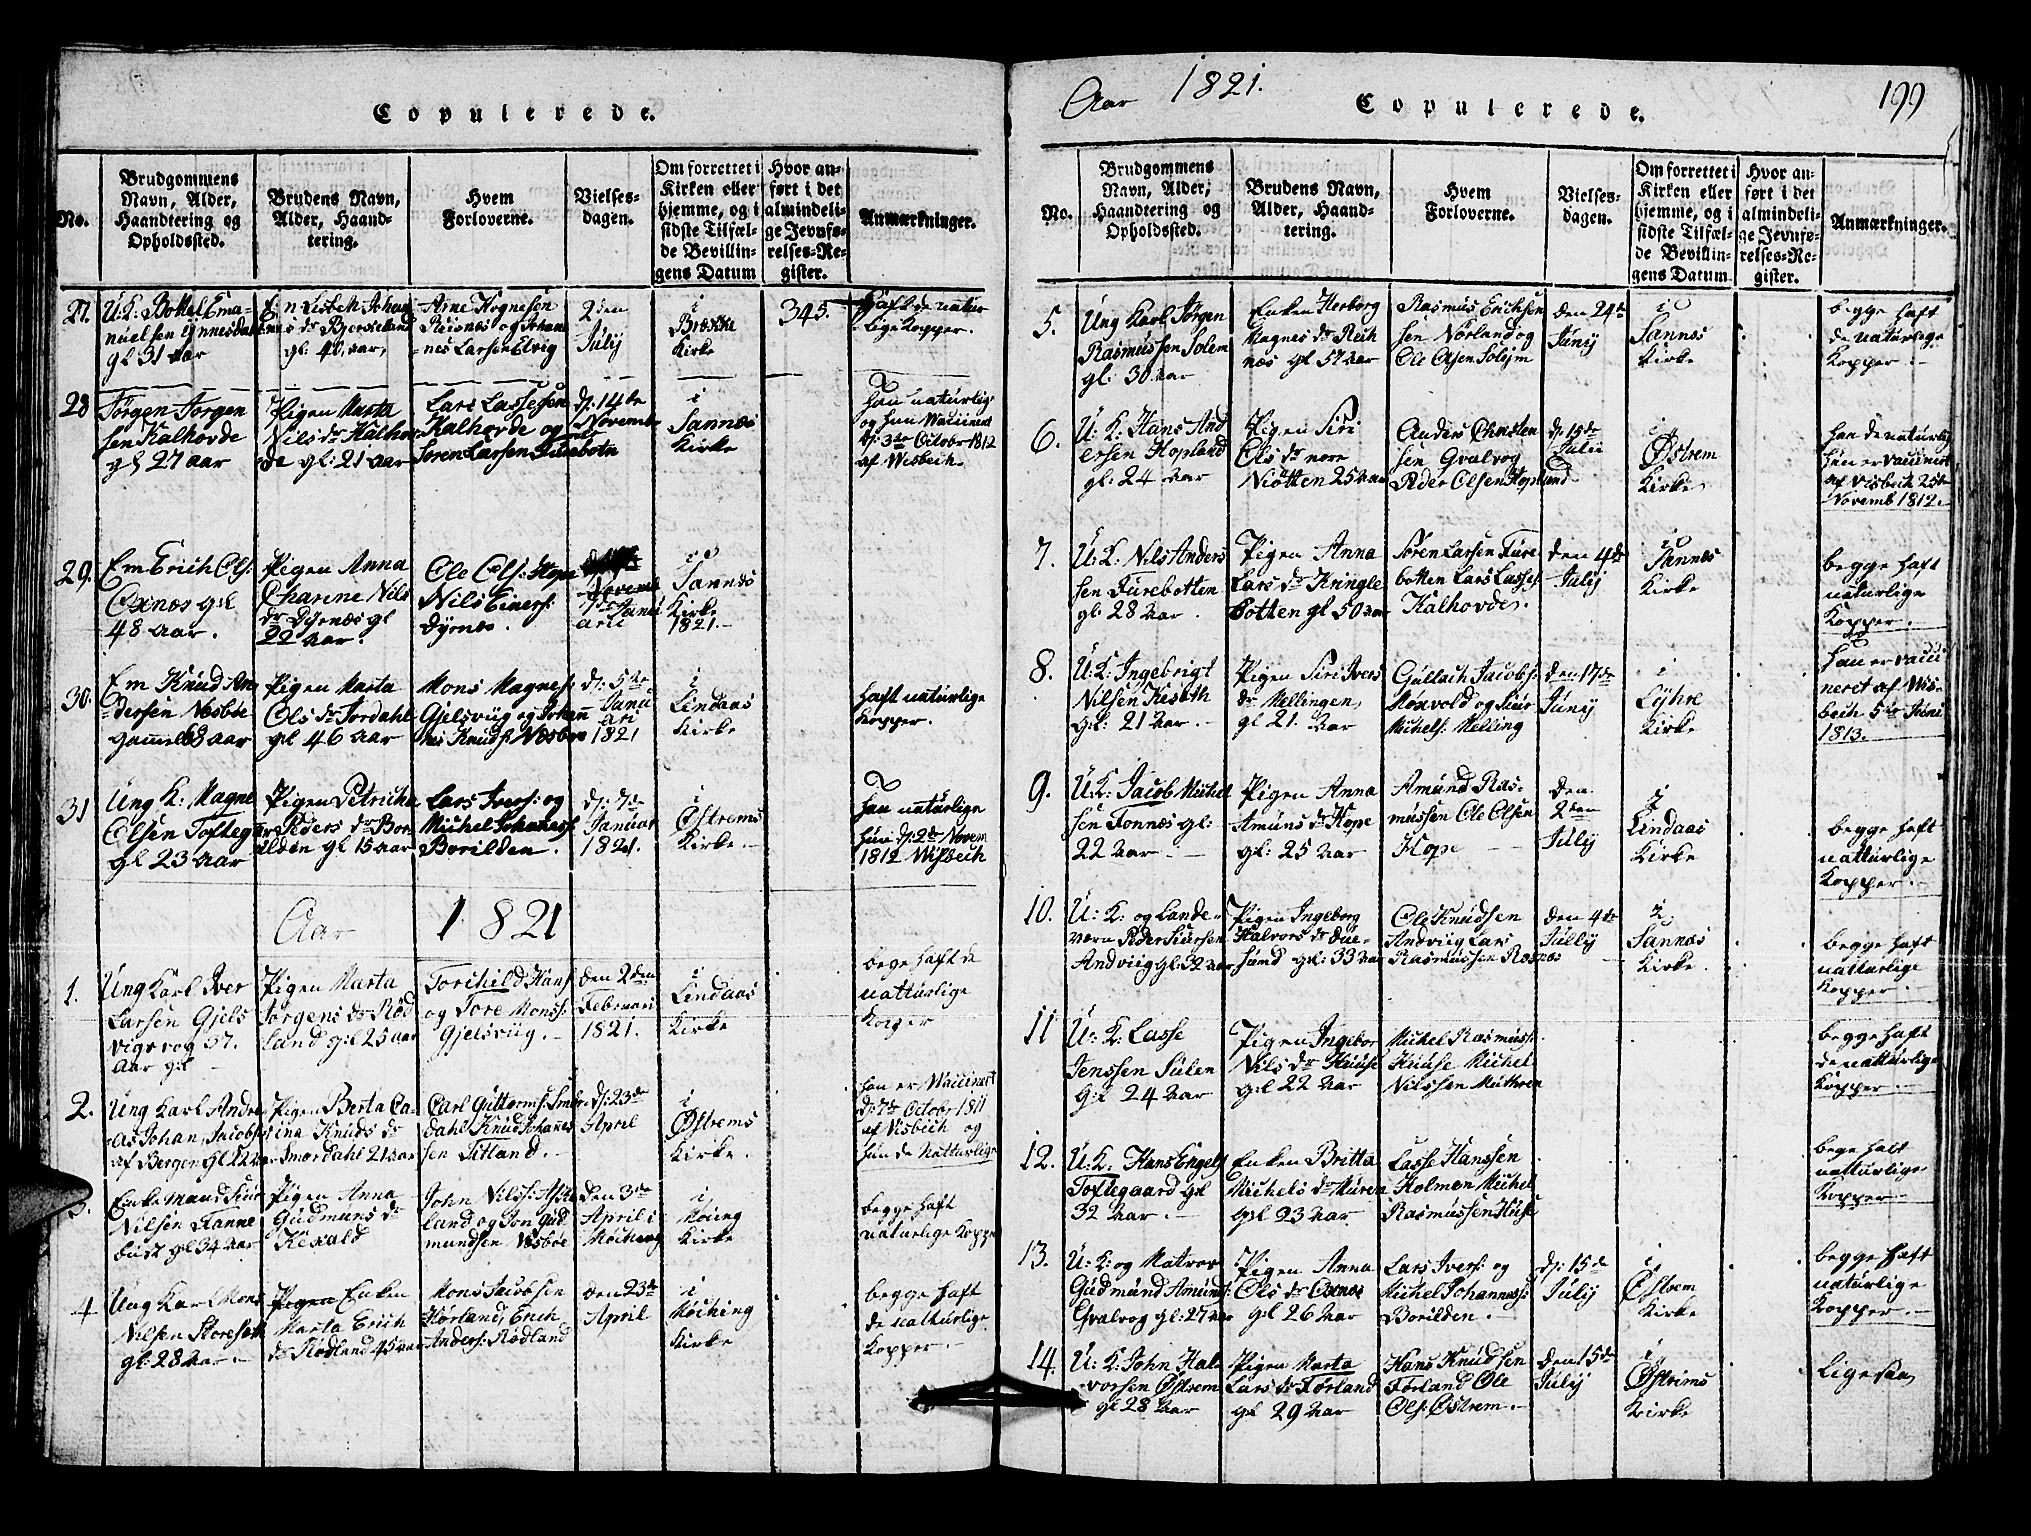 Copulerede.
No.
Brudgommens
Navn, Alder,
Haandtering og
Opholdssted.
Brudens Navn,
Alder, Haand-
tering.
Hvem
Forloverne.
Vielses-
dagen.
Om forrettet i
Kirken eller
hjemme, og i
sidste Tilfæl-
de Bevillin-
gens Datum
Hvor an-
ført i det
almindeli-
ge Jevnfø-
relses-Re-
gister.
Anmærkninger.
27.
U: K: Bottel Ema-
nuelsen
gl 31 aar
gl. 40, aar,
Arne Hognesen
Risnæs og Johan
nes Larsen Elvig
2den
Julij
i
Brække
Kirke
345.
Haft de natur
lige Kopper.
28
Jörgen Jörgen
sen Kalhovde
gl 27 aar
Pigen Marta
Nils dr Kalhov
de gl: 21 aar
Lars Lassesen
Kalhovde og
Sören Larsen Furebotn
d: 14de
Novembr
i
Sannæs
Kirke
Han naturlige
og hun Waccineret
d: 3de October 1812
af Wisbech.
29.
Em Erich Ols:
Oxnæs gl
48 aar.
Pigen Anna
Charine Nils
dr Dyrnæs gl
22 aar.
Ole Ols: Hope
Nils Einers:
Dyrnes.
Novemb
7de Janu
arii
i
Sannæs
Kirke
1821.
30.
Em Knud An
dersen Næsböe
gammel 63 aar
Pigen Marta
Ols dr Jordahl
gl 46 aar
Mons Magnes:
Gjelsviig og Johan
nes Knuds: Næsböe
d: 5te
Janu
ari
1821
i
Lindaas
Kirke
Haft naturlige
kopper.
31
Ung K: Magne
Olsen Toftega
gl 23 aar
Pigen Petricha
Peders dr Bor
ilden gl 15 aar
Lars Ivers: og
Michel Johaness:
Borilden.
d: 7de
Januar
1821.
i
Östrems
Kirke.
Han naturlige
Hun d: 2de Novem
1812 Wisbech
Aar 1821
1.
Ung Karl Iver
Larsen Gjels
vig og 37.
Aar gl
Pigen Marta
Jörgens dr Röd
land gl 25 aar
Torchild Hans
og Tore Mons:
Gjelsviig.
den 2den
Februari
1821.
i
Lindaas
Kirke
bege haft de
natturlige
Koper
2.
Ung Karl Andre
as Johan Jacobsen
af Bergen gl 22 aar
Pigen Berta Ca
ina Knuds dr
Smördahl 21 aar
Carl Guttorms: Smör
dahl Knud Johannes
sen Titland.
d: 23de
April
i
Östrems
Kirke.
han er Waccinert
d: 7de October 1811
af Visbech og
hun de Natturlige
3.
Enke mand Siur
Nilsen Fanne
bust gl 34 aar
Pigen Anna
Gudmuns dr
Kevald
John Nilss: Aske
land og Jon Gud
mundsen Næsböe
den 3de
April i
Möching
i
Möeing
Kirke
begge haft
naturlige Kopper
4
Ung Karl Mons
Nilsen Storeset
gl: 28 aar.
Pigen Enken
Marta Erich
dr Rödland 45 aar
Mons Jacobsen
Hörland, Erich
Anders: Rödland
den 23de
April
i
Möching
Kirke
begge haft
de natturlige
Kopper.
Aar 1821.
Copulerede.
199
No.
Brudgommens
Navn, Alder,
Haandtering og
Opholdssted.
Brudens Navn,
Alder, Haand-
tering.
Hvem
Forloverne.
Vielses-
dagen.
Om forrettet i
Kirken eller
hjemme, og i
sidste Tilfæl-
de Bevillin-
gens Datum
Hvor an-
ført i det
almindeli-
ge Jevnfø-
relses-Re-
gister.
Anmærkninger.
5.
Ung Karl Jörgen
Rasmussen Solem
gl: 30 aar
Enken Herborg
Magnes dr Reich
næs gl 57 aar
Rasmus Erichsen
sen Nörland og
Ole Olsen Solejm
den 24de
Junij
i
Sannæs
Kirke
begge haft
de naturlige
Kopper.
6.
U: K: Hans And
ersen Hopland
gl: 24 aar
Pigen Siri
Ols dr nere
Niötten 25 aar
Anders Christen
sen Gvalvog
Peder Olsen Hopland
d: 15de
Julii
i
Östrem
Kirke
han de naturlig
hun er vaccinert
af Visbech 25de
Novemb 1812.
7.
U: K: Nils Anders
sen Furebotten
gl: 28 aar.
Pigen Anna
Lars dr Kringle
botten gl 50 aar
Sören Larsen Fure
botten Lars Lasses:
Kalhovde.
den 4de
Julij
i
Sannæs
Kirke
begge haft
naturlige
Kopper.
8.
U: K: Ingebrigt
Nilsen Kiseth
gl: 21 aar.
Pigen Siri Ivers
dr Mellingen
gl 21. aar
Gullach Jacobs:
Rönvold og Siur
Michels: Melling
den 17de
Junij
i
Eyhre
Kirke
han er vacci
neret af Wis-
bech 5de Juni
1813.
9.
U: K: Jacob Michel
sen Fonnæs gl:
22 aar.
Pigen Anna
Amuns dr Hope
gl: 25 aar
Amund Ras-
mussen Ole Olsen
Hope
den
2den
Julij
i
Lindaas
Kirke
begge haft
natturlige
Kopper.
10.
U: K: og Lande-
værn Peder Siursen
Andviig gl: 32 aar
Pigen Ingeborg
Halvors dr Due-
sund gl: 33 aar
Ole Knudsen
Andviig Lars
Rasmussen Risnæs
den 4de
Jullij
i
Sannæs
Kirke.
begge haft
naturlige
Kopper.
11
U: K: Lasse
Jenssen Sulen
gl 24 aar
Pigen Ingebor
Nils dr Huuse
gl 22 aar
Michel Rasmuss:
Huuse Michel
Nilssen Muthren
begge haft
de natturlige
Kopper.
12.
U: K: Hans Engels
Toftegaard gl
32 aar.
Enken Britta
Michels dr Muren
gl 23 aar
Lasse Hanssen
Holmen Michel
Rasmussen Huse
bege haft
natturlige
Kopper
13.
U: K: og Matros
Gudmund Amunds:
Gvalvog gl: 27 aar
Pigen Anna
Ols dr Oxnæs
gl 26 aar
Lars Ivers: og
Michel Johanness:
Borilden.
d: 15de
Julij
i
Östrem
Kirke
begge haft
naturlige
Kopper.
14.
U: K: John Hal
vorsen Östrem
gl 28 aar
Pigen Marta
Lars dr Förland
gl 29 aar
Hans Knudsen
Förland Ole
Ols: Östrem.
den 15de
Julij
i
Östrems
Kirke
Ligesaa